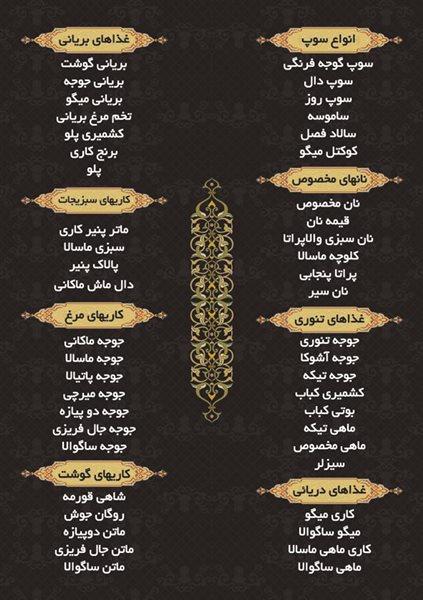 انواع سوپ
سوپ گوجه فرنگی
سوپ دال
سوپ روز
ساموسه
سالاد فصل
کوکتل میگو
نانهای مخصوص
نان مخصوص
قیمه نان
نان سبزی والاپراتا
کلوچه ماسالا
پراتا پنجابی
نان سیر
غذاهای تنوری
جوجه تنوری
جوجه آشوکا
جوجه تیکه
کشمیری کباب
بوتی کباب
ماهی تیکه
ماهی مخصوص
سیزلر
غذاهای دریائی
کاری میگو
میگو ساگوالا
کاری ماهی ماسالا
ماهی ساگوالا
غذاهای بریانی
بریانی گوشت
بریانی جوجه
بریانی میگو
تخم مرغ بریانی
کشمیری پلو
برنج کاری
پلو
کاریهای سبزیجات
ماتر پنیر کاری
سبزی ماسالا
پالاک پنیر
دال ماش ماکانی
کاریهای مرغ
جوجه ماکانی
جوجه ماسالا
جوجه پاتیالا
جوجه میرچی
جوجه دو پیازه
جوجه جال فریزی
جوجه ساگوالا
کاریهای گوشت
شاهی قورمه
روگان جوش
ماتن دوپیازه
ماتن جال فریزی
ماتن ساگوالا